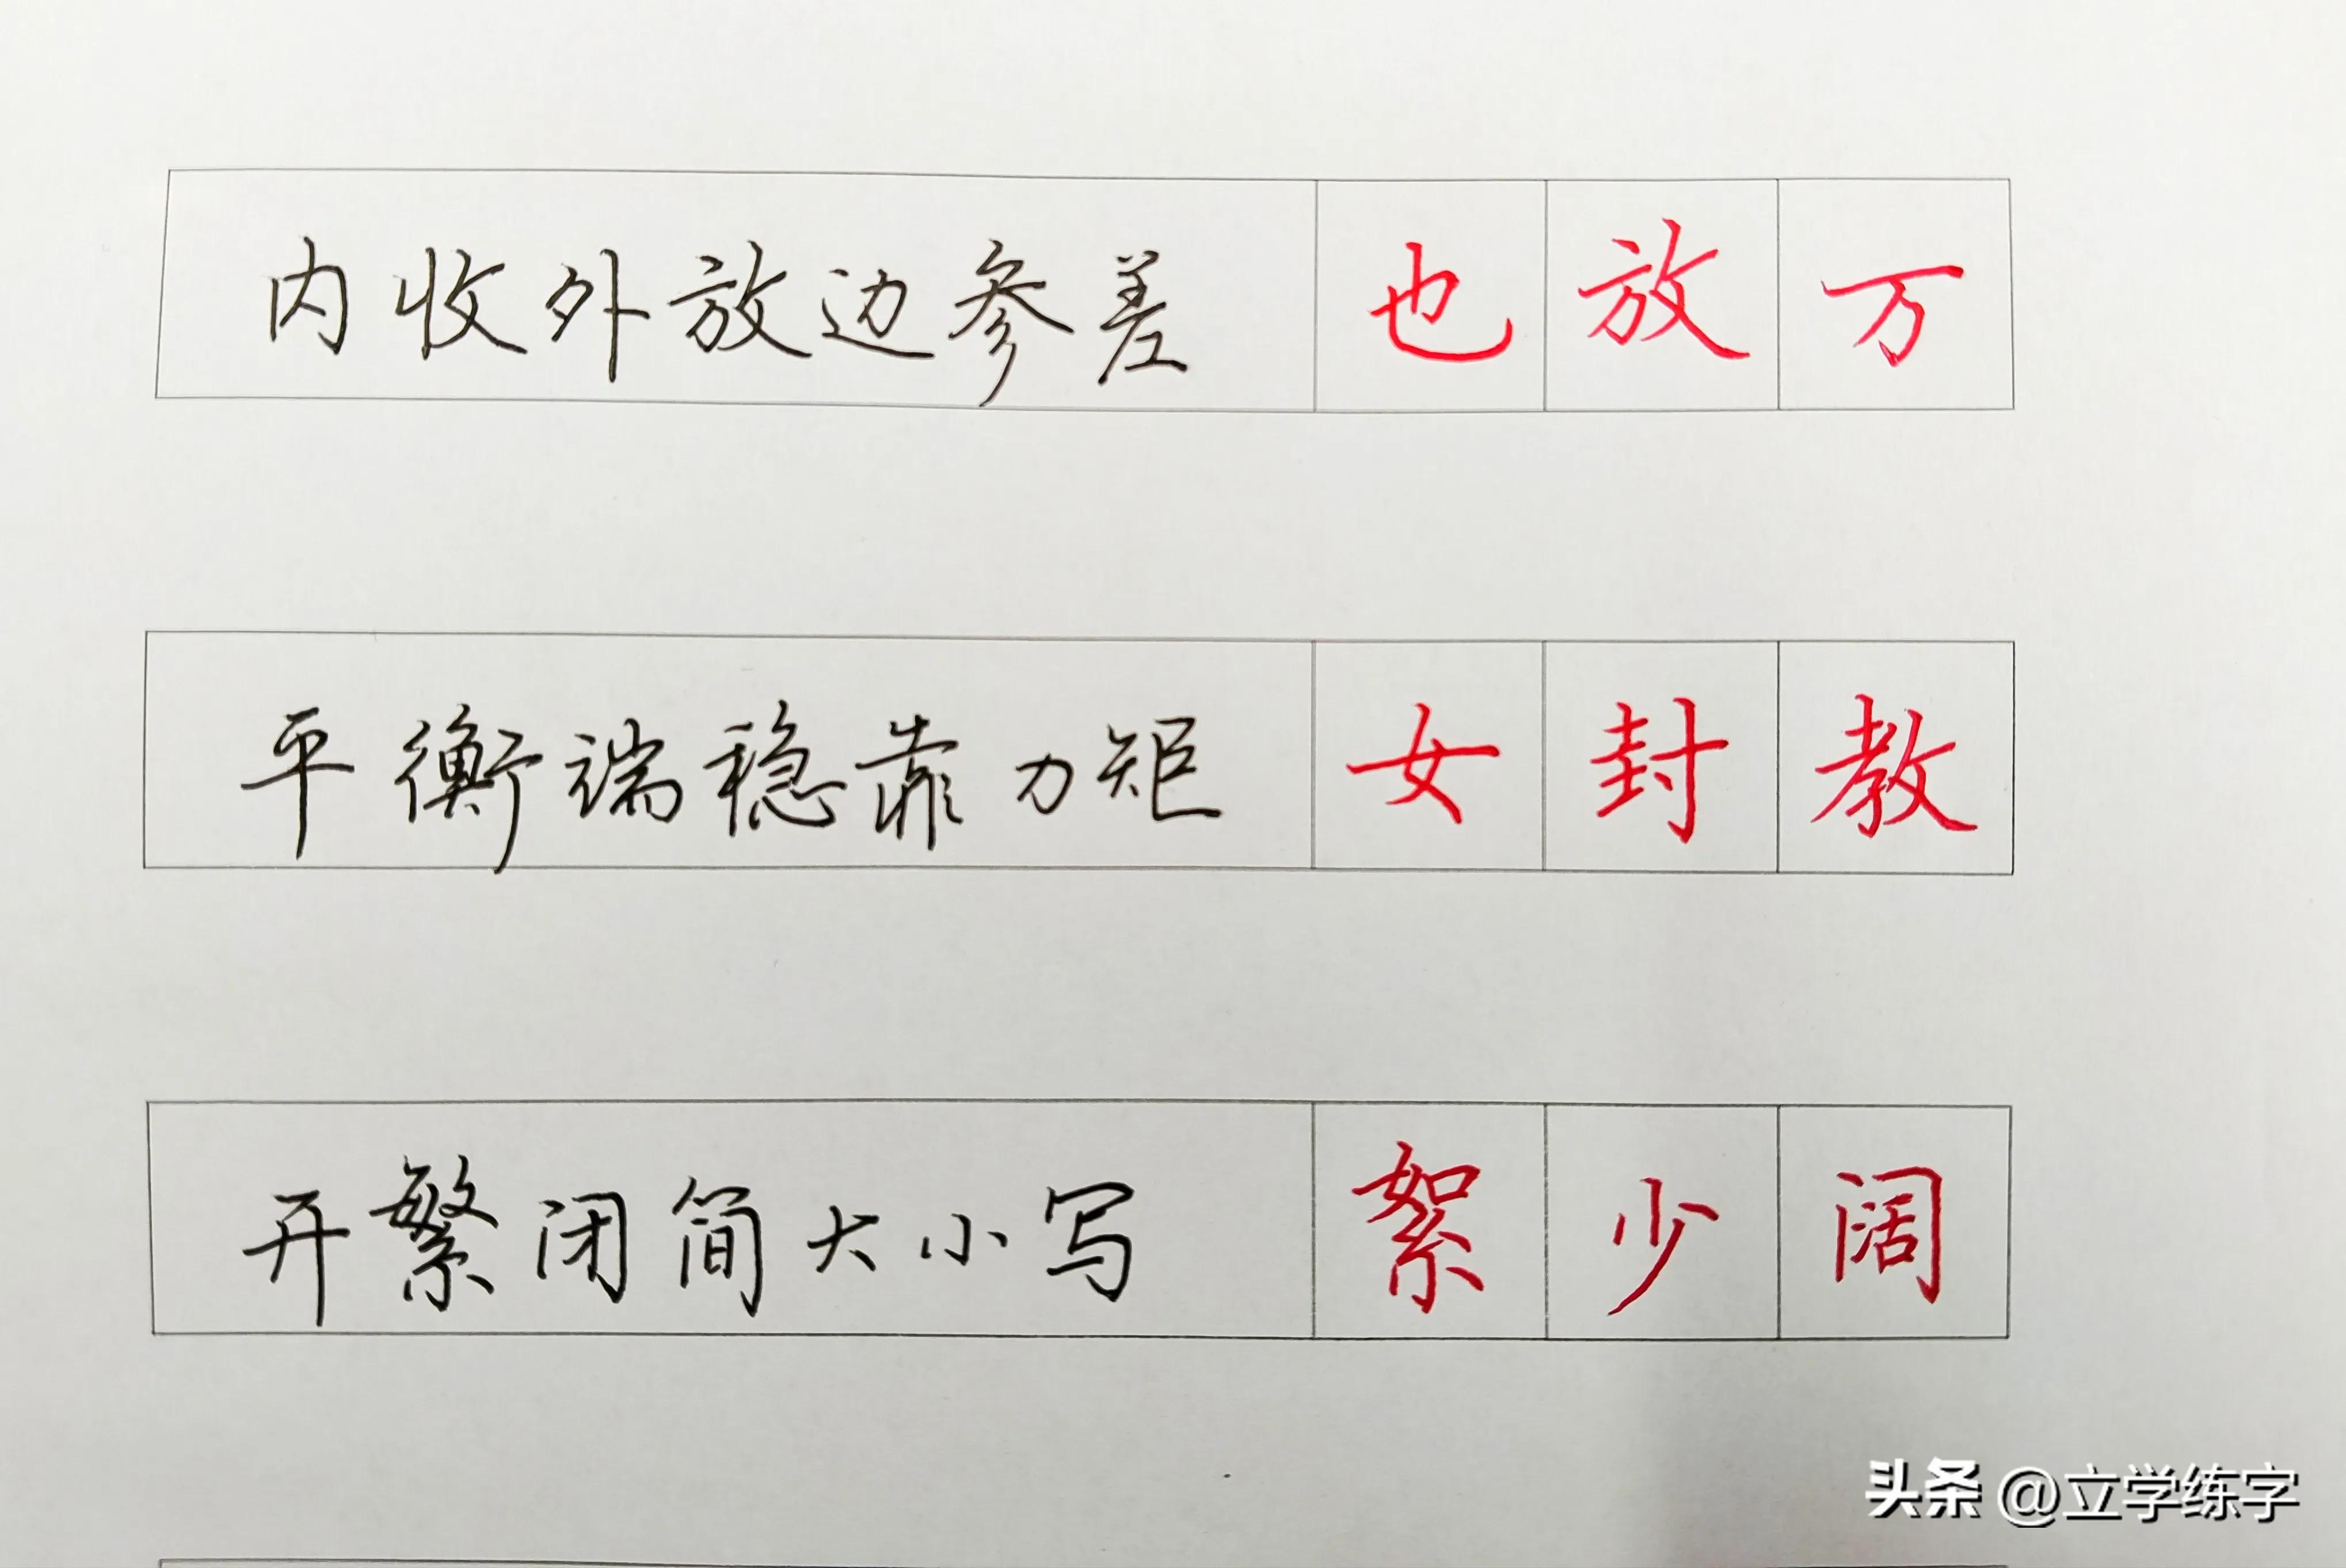 内收外放边参差 也 放 万
平衡端稳靠力矩 女 封 教
开繁闭简大小写 絮 少 阔
头条 @立学练字